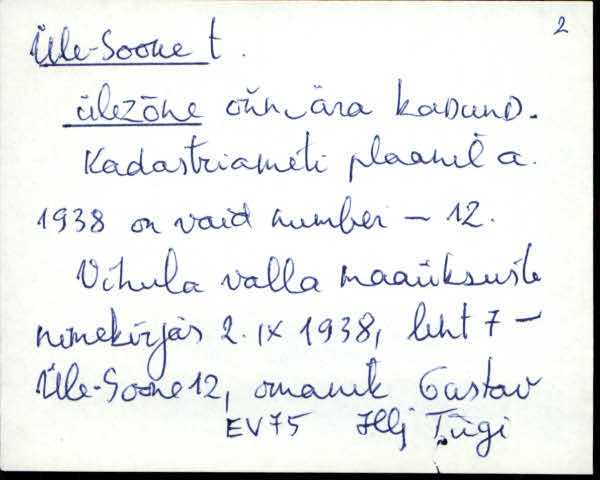 2
Üle-Soone t.
ülezōne on ära kadund.
Kadastriameti plaanil a.
1938 on vaid number – 12.
Vihula valla maaüksuste
nimekirjas 2. IX 1938, leht 7 –
Üle-Soone 12, omanik Gustav
EV75 Hlj Tügi